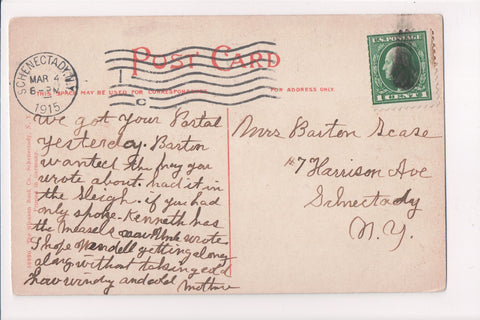 POST CARD
SCHENECTADY, N.Y.
MAR 4
1915
THIS SPACE MAY BE USED FOR CORRESPONDENCE
FOR ADDRESS ONLY.
U.S. POSTAGE
1 CENT 1
We got your Postal
yesterday. Barton
wanted the frug you
wrote about. had it in
the sleigh. if you had
only spoke. Kenneth has
the measels wrote
I hope Wendell getting along
along without taking cold
how windy and cold Mother
Mrs Barton Scase
47 Harrison Ave
Schnectady
N.Y.